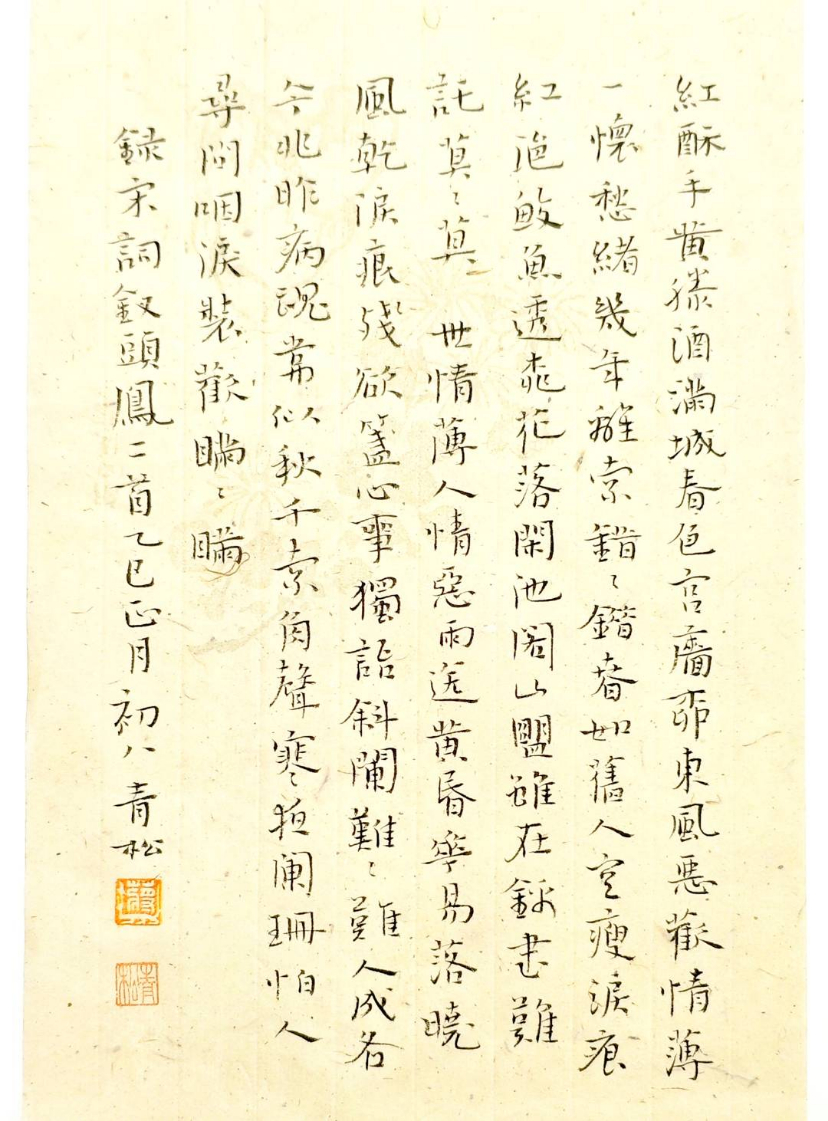 紅酥手黄滕酒滿城春色宫牆柳東風惡歡情薄
一懷愁緒幾年離索錯〻錯春如舊人空瘦淚痕
紅浥鮫魚透桃花落閑池閣山盟雖在錦書難
託莫〻莫 世情薄人情惡雨送黄昏花易落曉
風乾淚痕殘欲箋心事獨語斜闌難〻難人成各
今非昨病魂常似秋千索角聲寒夜闌珊怕人
尋問咽淚裝歡瞞〻瞞
録宋詞釵頭鳳二首乙巳正月初八青松
青松